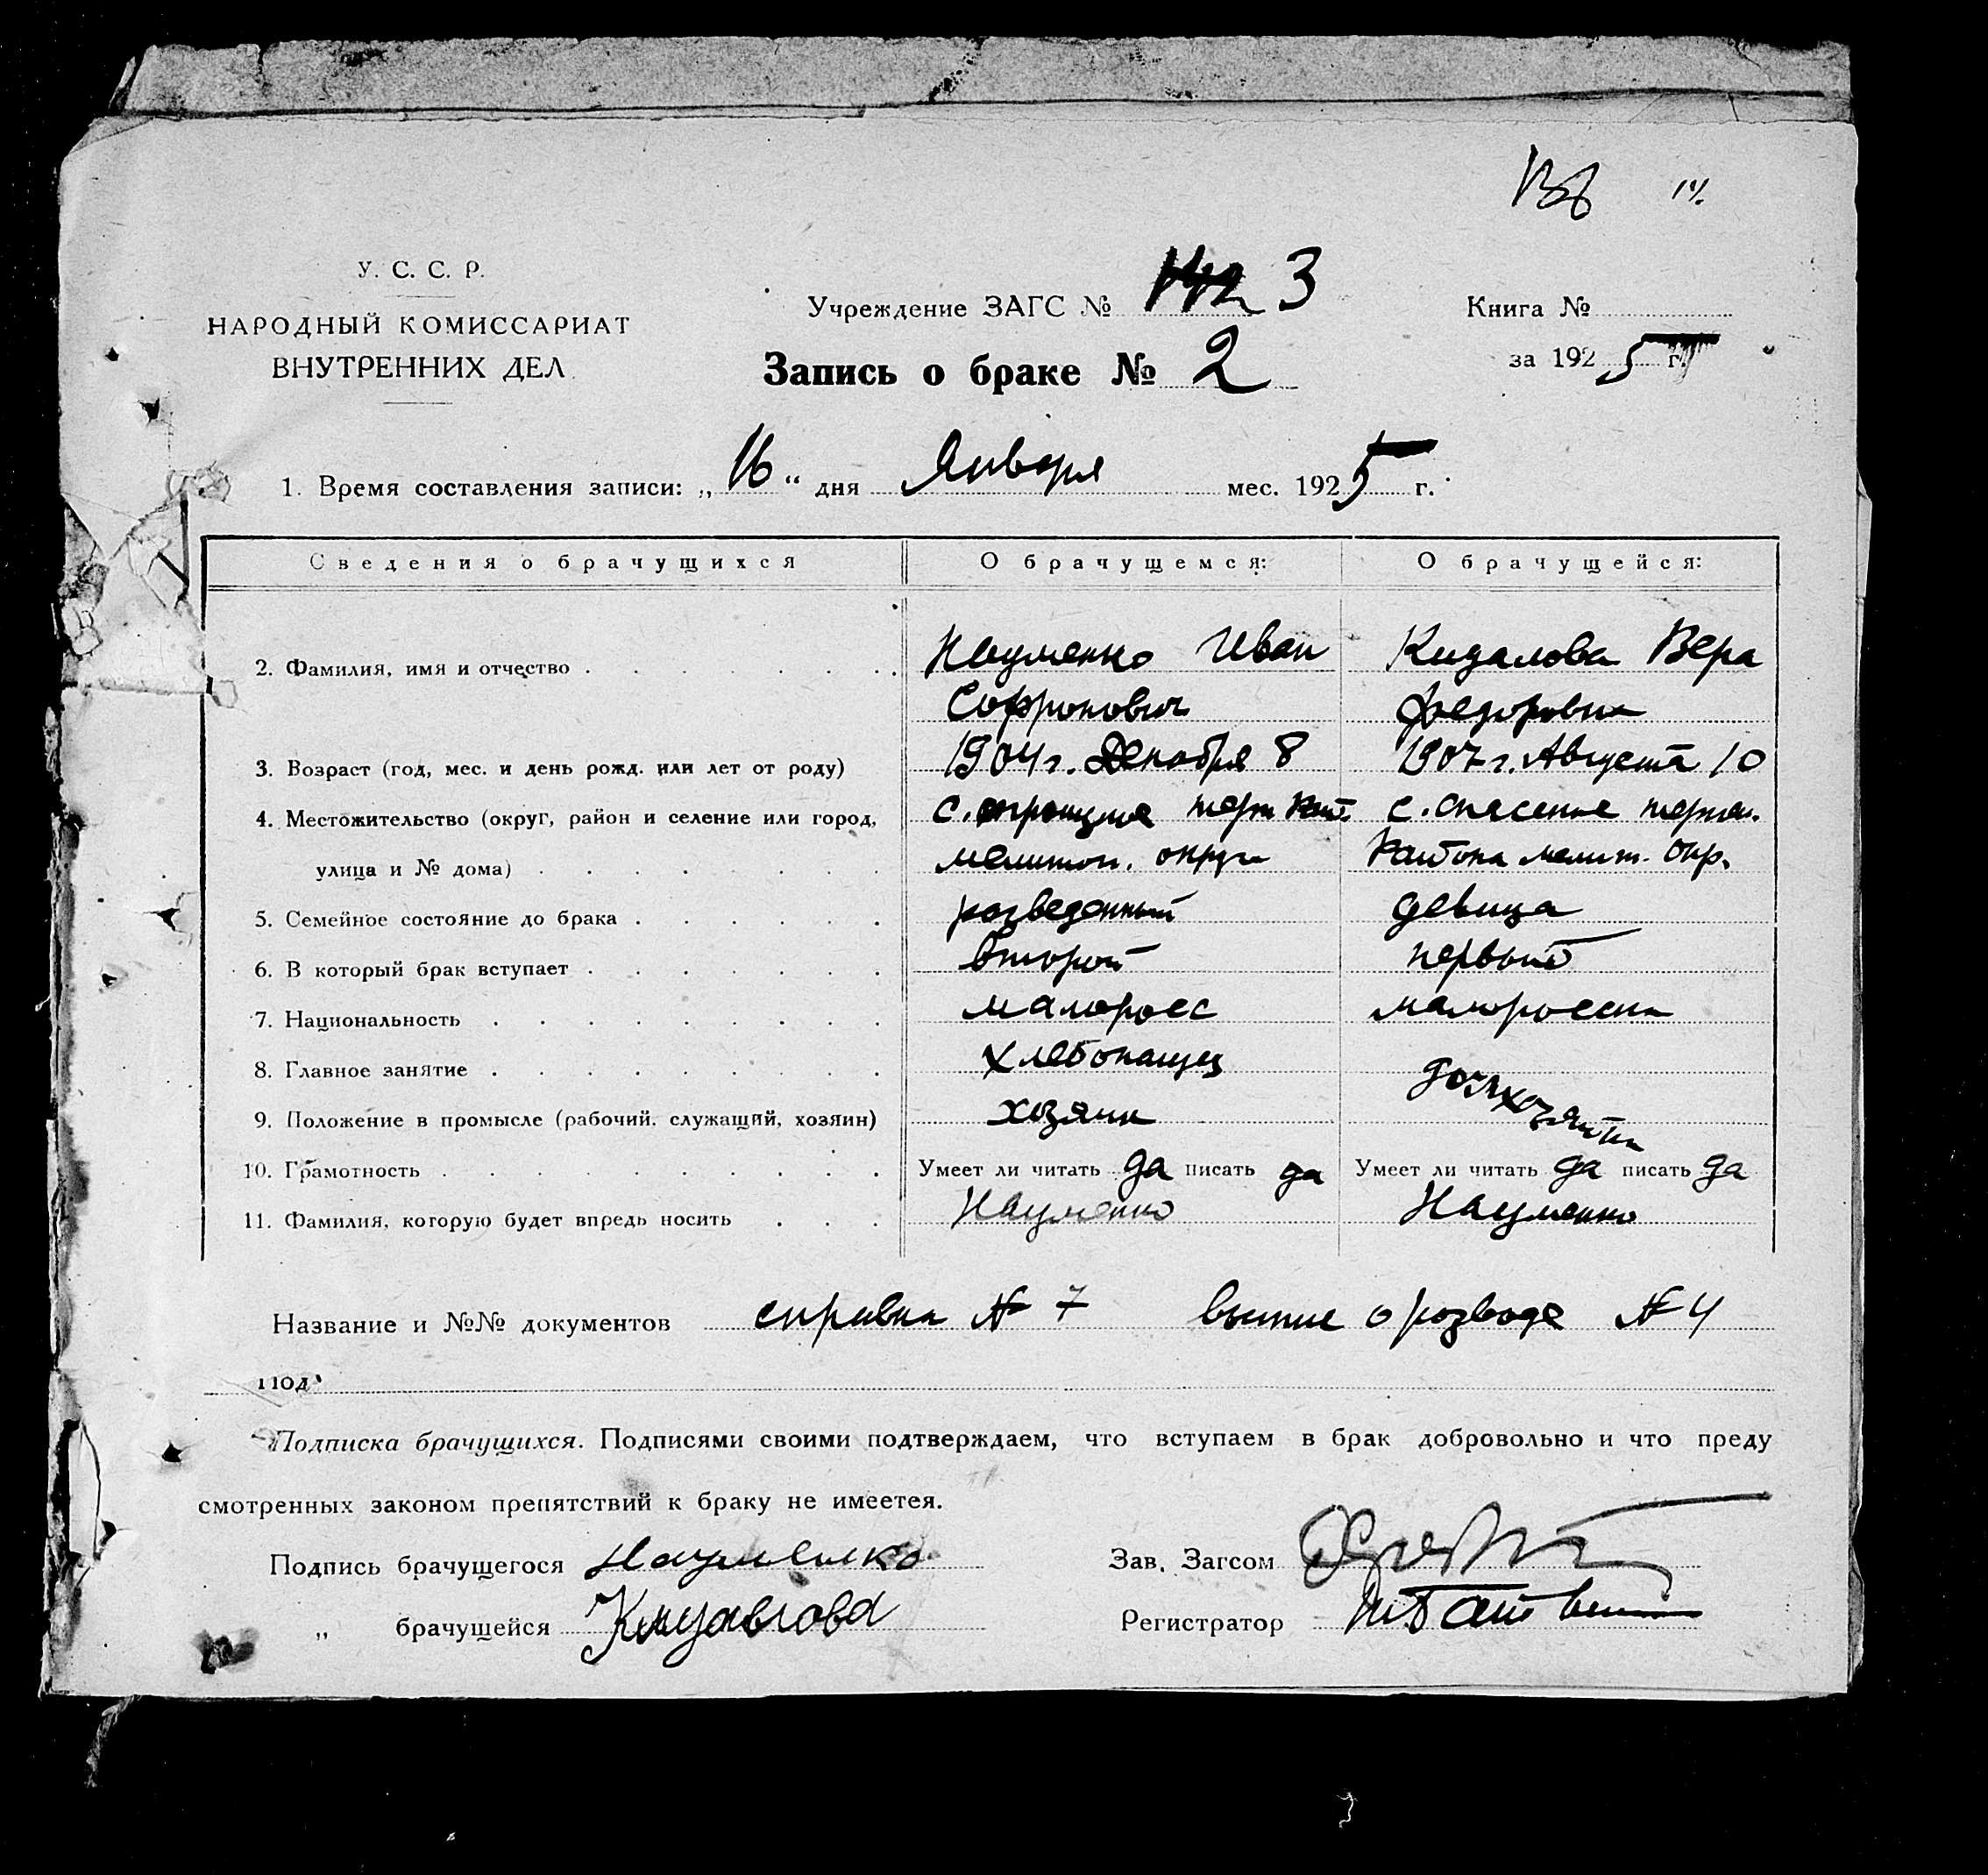 У. С. С. Р.
НАРОДНЫЙ КОМИССАРИАТ
ВНУТРЕННИХ ДЕЛ
Учреждение ЗАГС № 3
Книга №
Запись о браке № 2
за 1925 г.
1. Время составления записи: „16“ дня Января мес. 1925 г.
Сведения о брачущихся О брачущемся: О брачущейся:
2. Фамилия, имя и отчество Науменко Иван Вера
Софронович Федоровна
3. Возраст (год, мес. и день рожд. или лет от роду) 1904 г. Декабря 8 1907 г. Августа 10
4. Местожительство (округ, район и селение или город, с. с.
улица и № дома) мелитоп. округа района мелит. окр.
5. Семейное состояние до брака разведенный девица
6. В который брак вступает второй первый
7. Национальность малоросс малоросска
8. Главное занятие хлебопашец
9. Положение в промысле (рабочий, служащий, хозяин) хозяин
10. Грамотность Умеет ли читать да писать да Умеет ли читать да писать да
11. Фамилия, которую будет впредь носить Науменко Науменко
Название и №№ документов справка № 7 о разводе № 4
Под
Подписка брачущихся. Подписями своими подтверждаем, что вступаем в брак добровольно и что преду
смотренных законом препятствий к браку не имеется.
Подпись брачущегося Науменко Зав. Загсом
„ брачущейся Регистратор